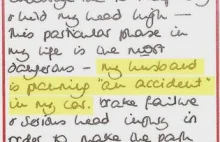 & hold my head high —
This particular phase in
my life is the most
dangerous - my husband
is planning "an accident"
in my car. brake failure
& serious head injury in
order to make the path